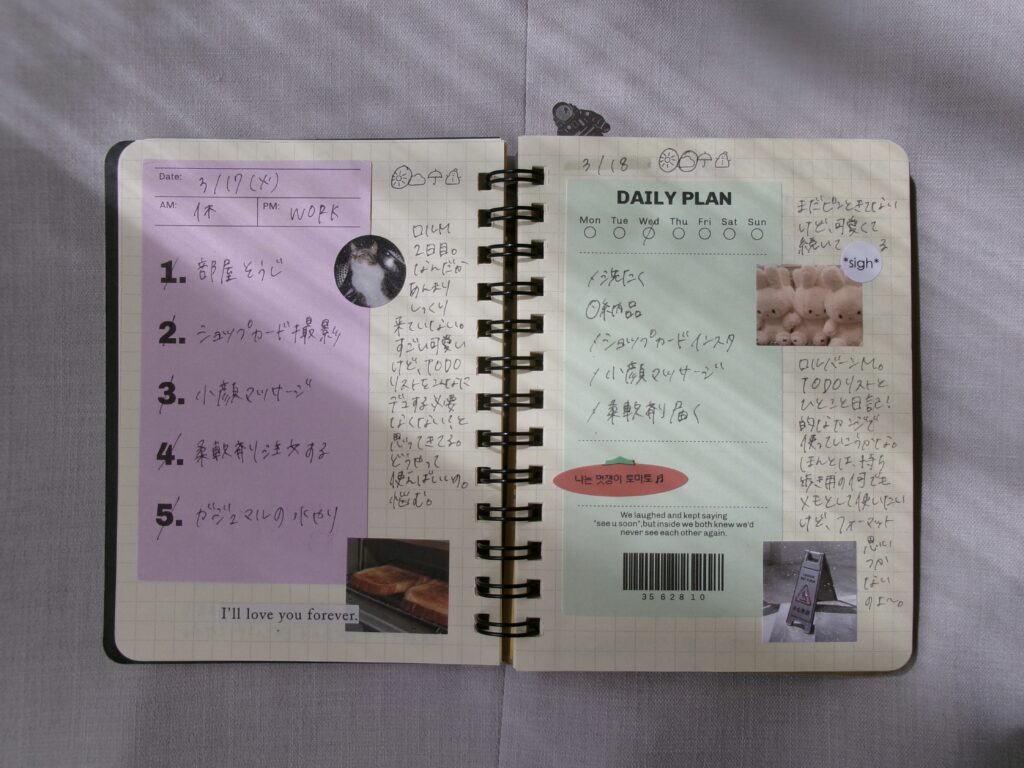 Date: 3/17(火)
AM: 休 PM: WORK
1. 部屋そうじ
2. ショップカード撮影
3. 小顔マッサージ
4. 柔軟剤注文する
5. ガジュマルの水やり
I'll love you forever.
ロルM
2日目。
なんだか
あんまり
しっくり
来ていない。
すごい可愛い
けど、TODO
リストをこんなに
デコする必要
なくない?と
思ってきてる。
どうやって
使えばいいの。
悩む。
3/18
DAILY PLAN
Mon Tue Wed Thu Fri Sat Sun
洗たく
納品
ショップカードインスタ
小顔マッサージ
柔軟剤届く
나는 멋쟁이 토마토
We laughed and kept saying
"see u soon",but inside we both knew we'd
never see each other again.
3562810
まだピンときてない
けど、可愛くて
続いて る
*sigh*
ロルバーンM。
TODOリストと
ひとこと日記!
的なカンジで
使っていこうかな。
ほんとは、持ち
歩き用の何でも
メモとして使いたい
けど、フォーマット
思い
つか
ない
のよ〜。